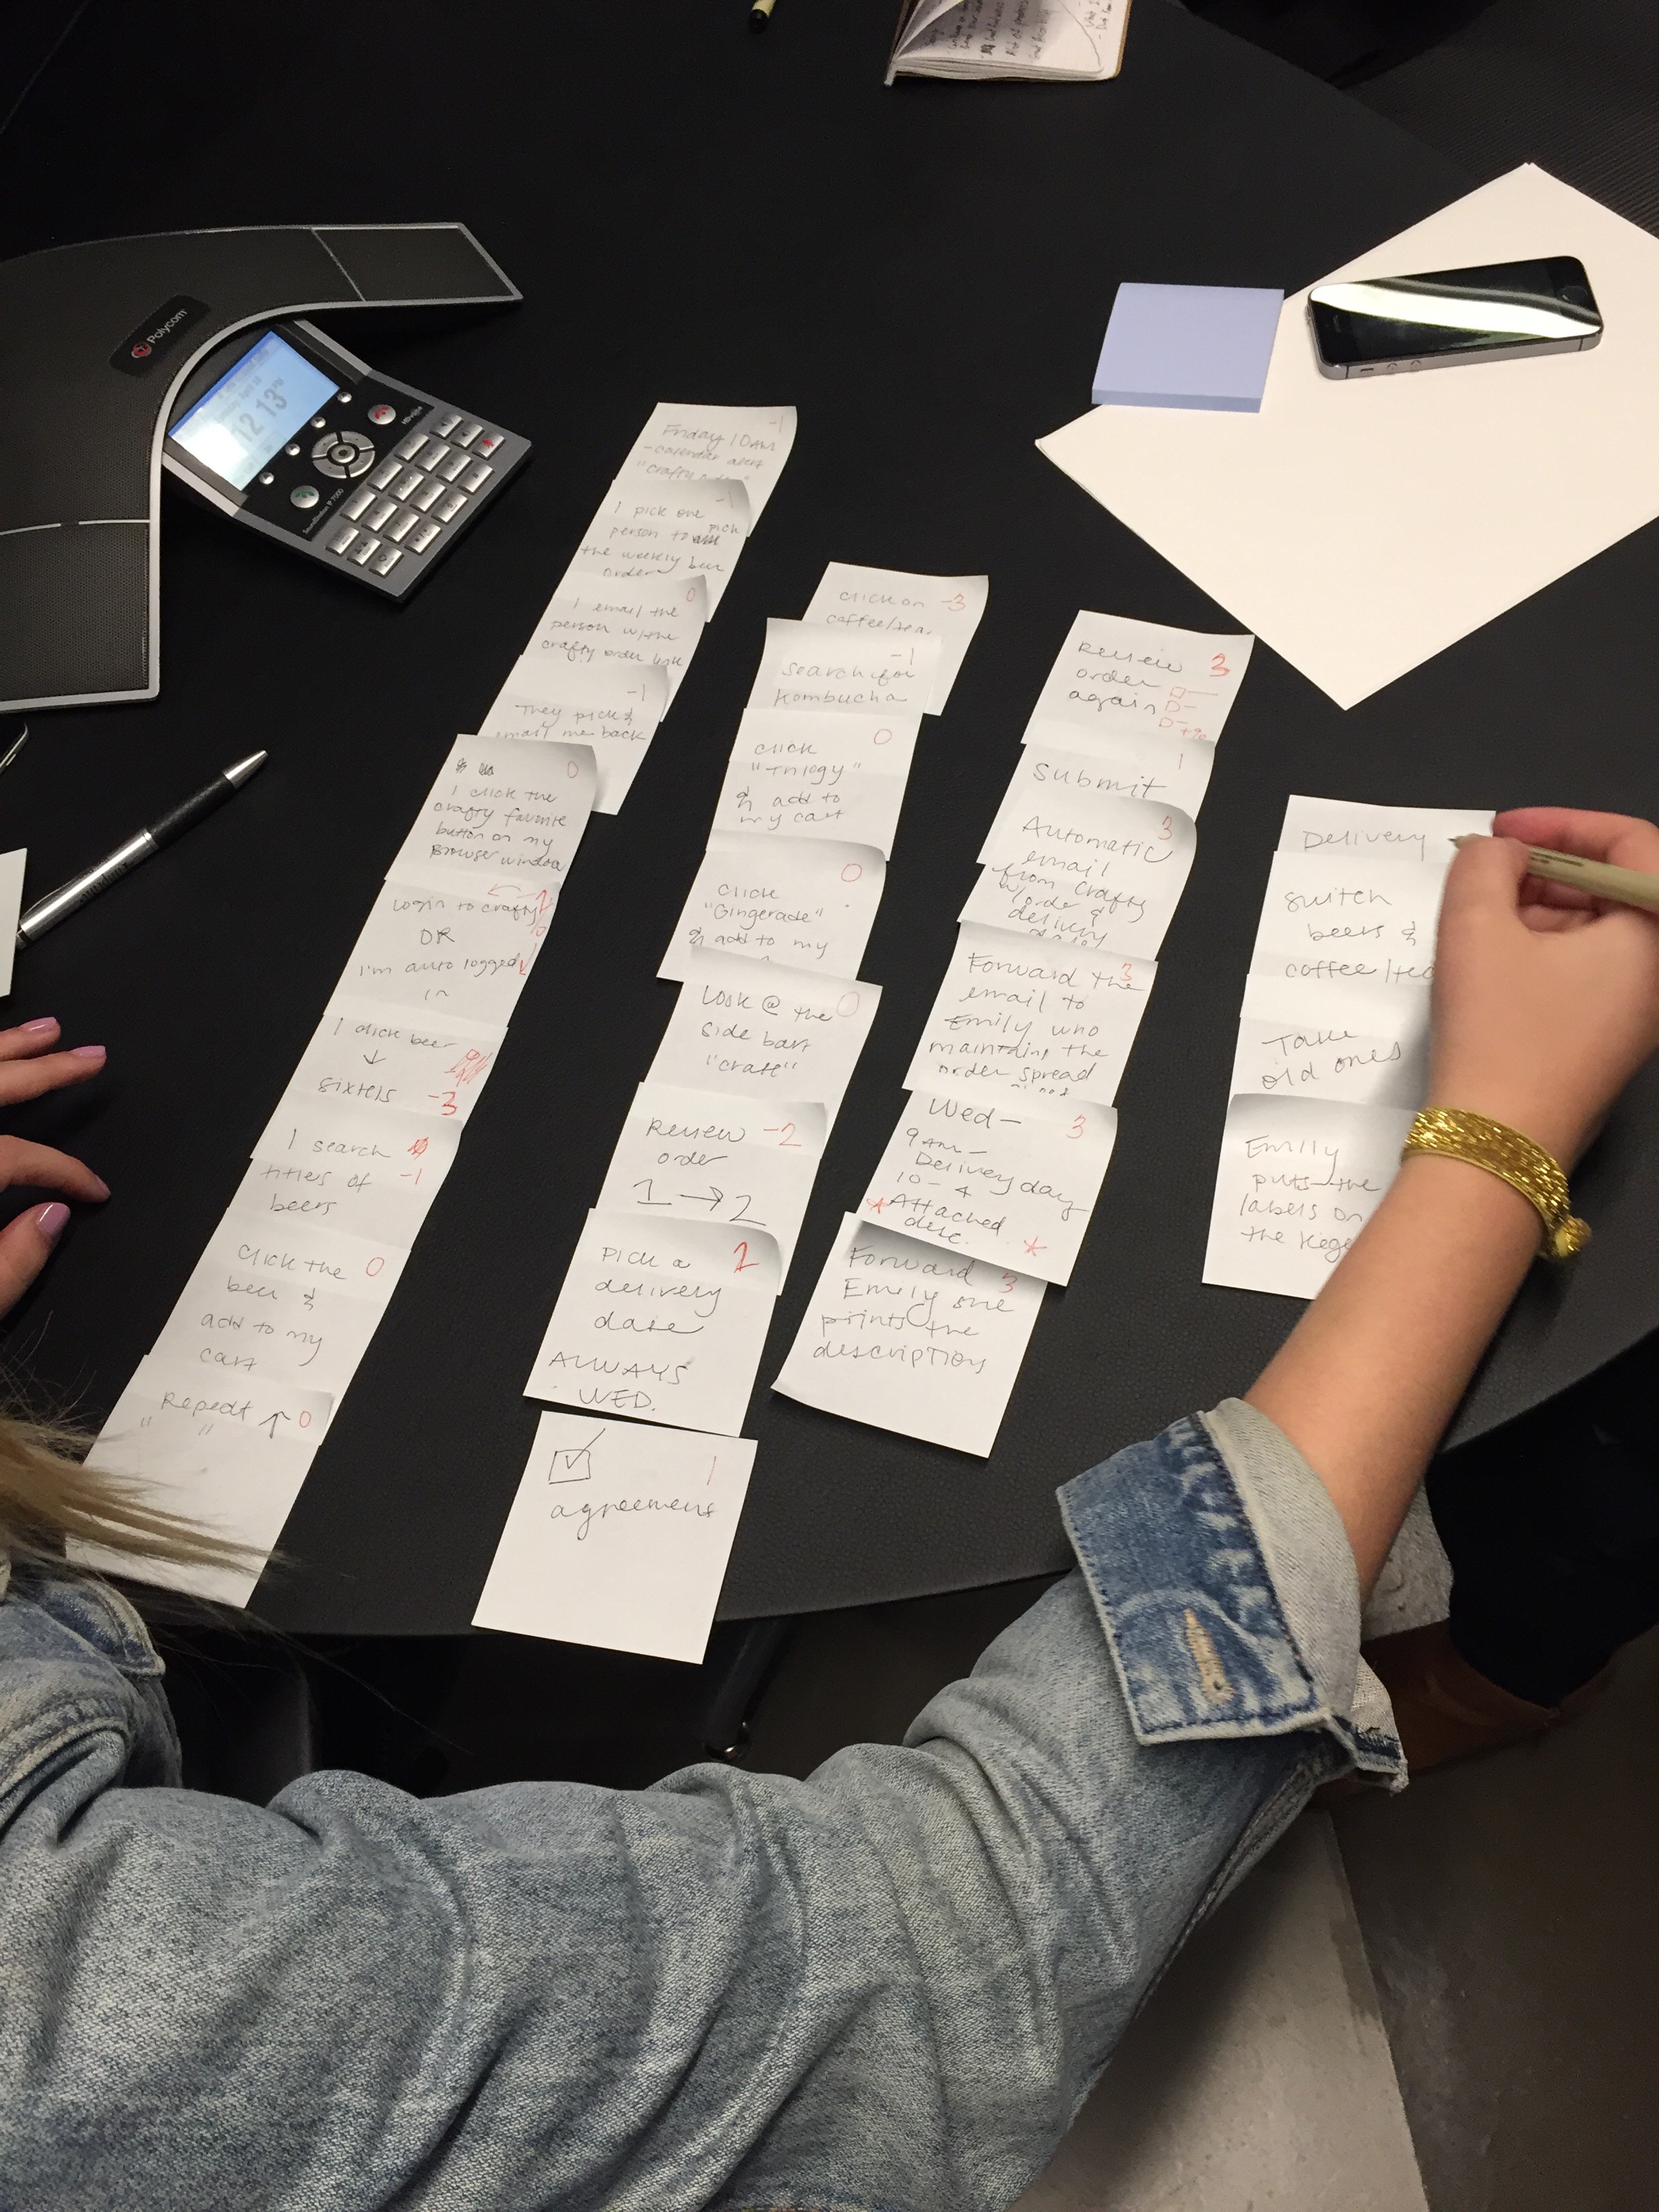 Polycom
12 13
-1
Friday 10AM
- calendar alert
"crafty
-1
I pick one
person to pick
the weekly beer
order
0
I email the
person w/the
crafty order link
-1
They pick &
email me back
0
I click the
crafty favorite
button on my
Browser window
Login to crafty
OR
I'm auto logged
in
I click beer
↓
sixtels -3
I search
titles of -1
beers
Click the 0
beer &
add to my
cart
Repeat ↑ 0
" "
click on -3
coffee/tea
-1
search for
kombucha
0
click
"Trilogy"
& add to
my cart
0
click
"Gingerade"
& add to my
0
Look @ the
side bar
"crate"
Review -2
order
1 → 2
Pick a
delivery
date
ALWAYS
WED.
☑ 1
agreement
Review 3
order
again
1
submit
3
Automatic
email
from crafty
w/order &
delivery
date
Forward the 3
email to
Emily who
maintains the
order spread
Wed- 3
9am-
Delivery day
10-4
* Attached
desc. *
Forward 3
Emily she
prints the
description
Delivery
switch
beers &
coffee/tea
Take
old ones
Emily
puts the
labels on
the kegs